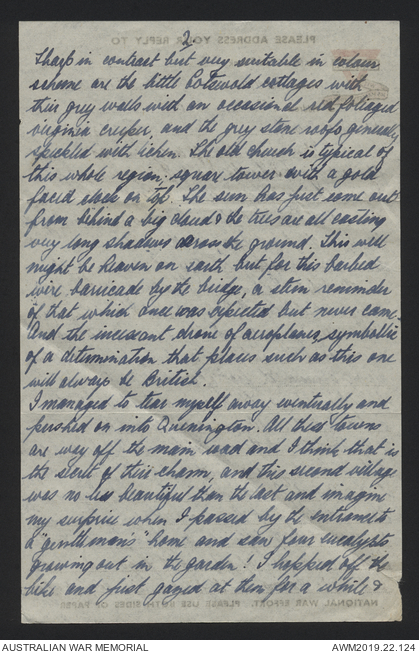 2
Sharp in contrast but very suitable in colour
scheme are the little Cotswold cottages with
their grey walls with an occasional red foliaged
virginia creeper, and the grey stone roofs generally
speckled with lichen. The old church is typical of
this whole region, square tower with a gold
faced clock on top. The sun has just come out
from behind a big cloud & the trees are all casting
very long shadows across the ground. This well
might be heaven on earth but for this barbed
wire barricade by the bridge, a stern reminder
of that which once was expected but never came.
And the incessant drone of aeroplanes, symbolic
of a determination that places such as this one
will always be British.
I managed to tear myself away eventually and
pushed on into Quenington. All these towns
are way off the main road and I think that is
the secret of their charm, and this second village
was no less beautiful than the last and imagine
my surprise when I passed by the entrance to
a "gentleman's" home and saw four eucalypts
growing out in the garden! I hopped off the
bike and just gazed at them for a while &
PLEASE ADDRESS YOUR REPLY TO
NATIONAL WAR EFFORT. PLEASE USE BOTH SIDES OF PAPER
AUSTRALIAN WAR MEMORIAL
AWM2019.22.124